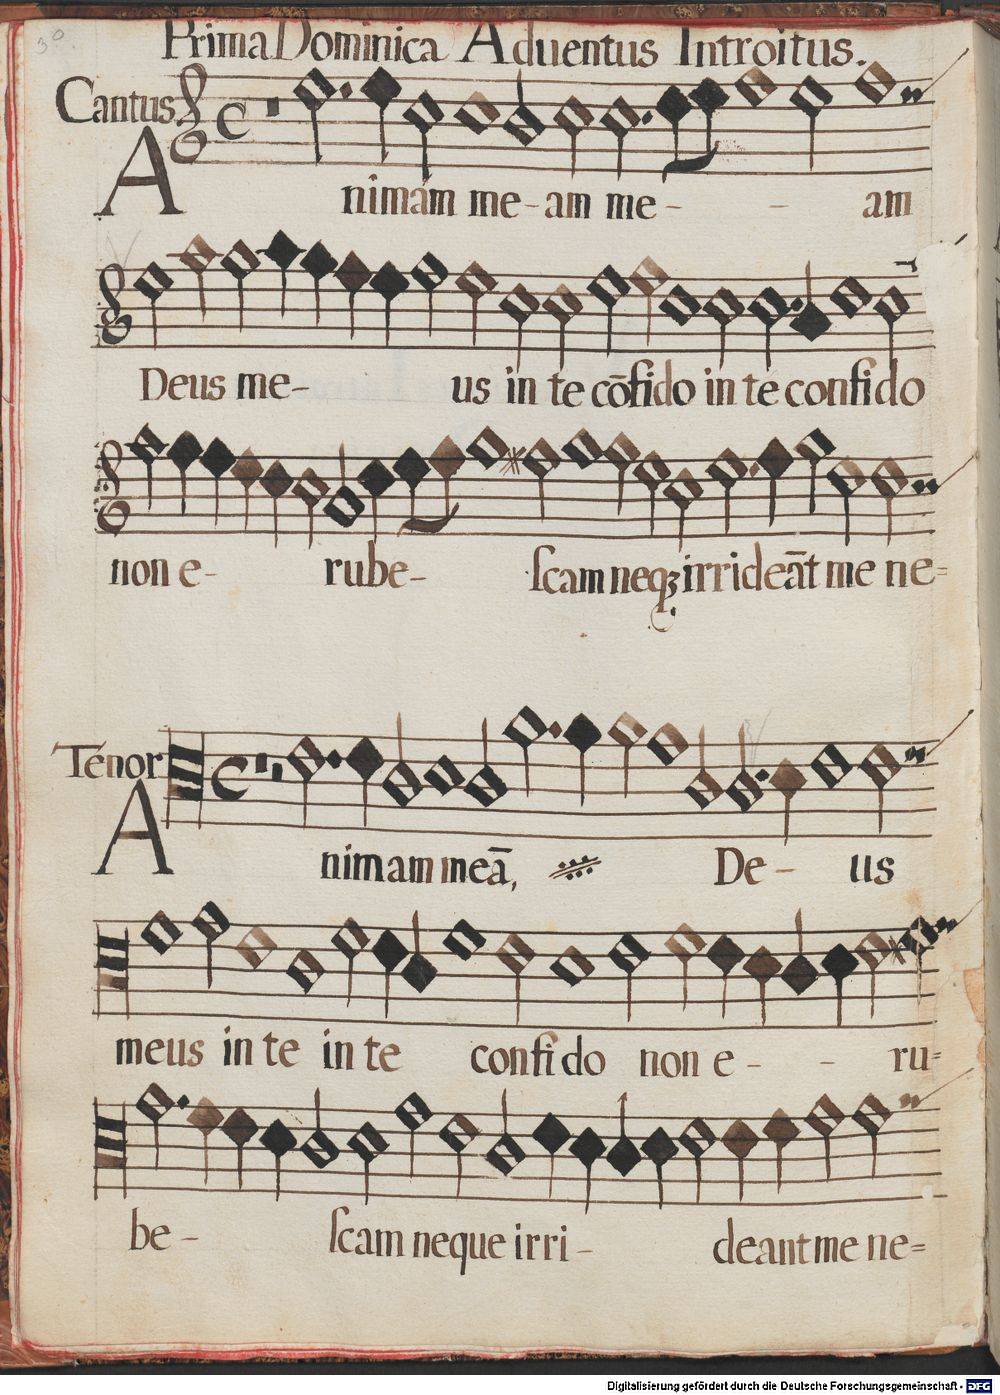 30
Prima Dominica Aduentus Introitus.
Cantus
Animam me-am me- - am
Deus me- us in te cōfido in te confido
non e- rube- ſcam neqꝫ irrideāt me ne=
Tenor
Animam meā, De- us
meus in te in te confido non e- - ru=
be- ſcam neque irri- deant me ne=
Digitalisierung gefördert durch die Deutsche Forschungsgemeinschaft - DFG